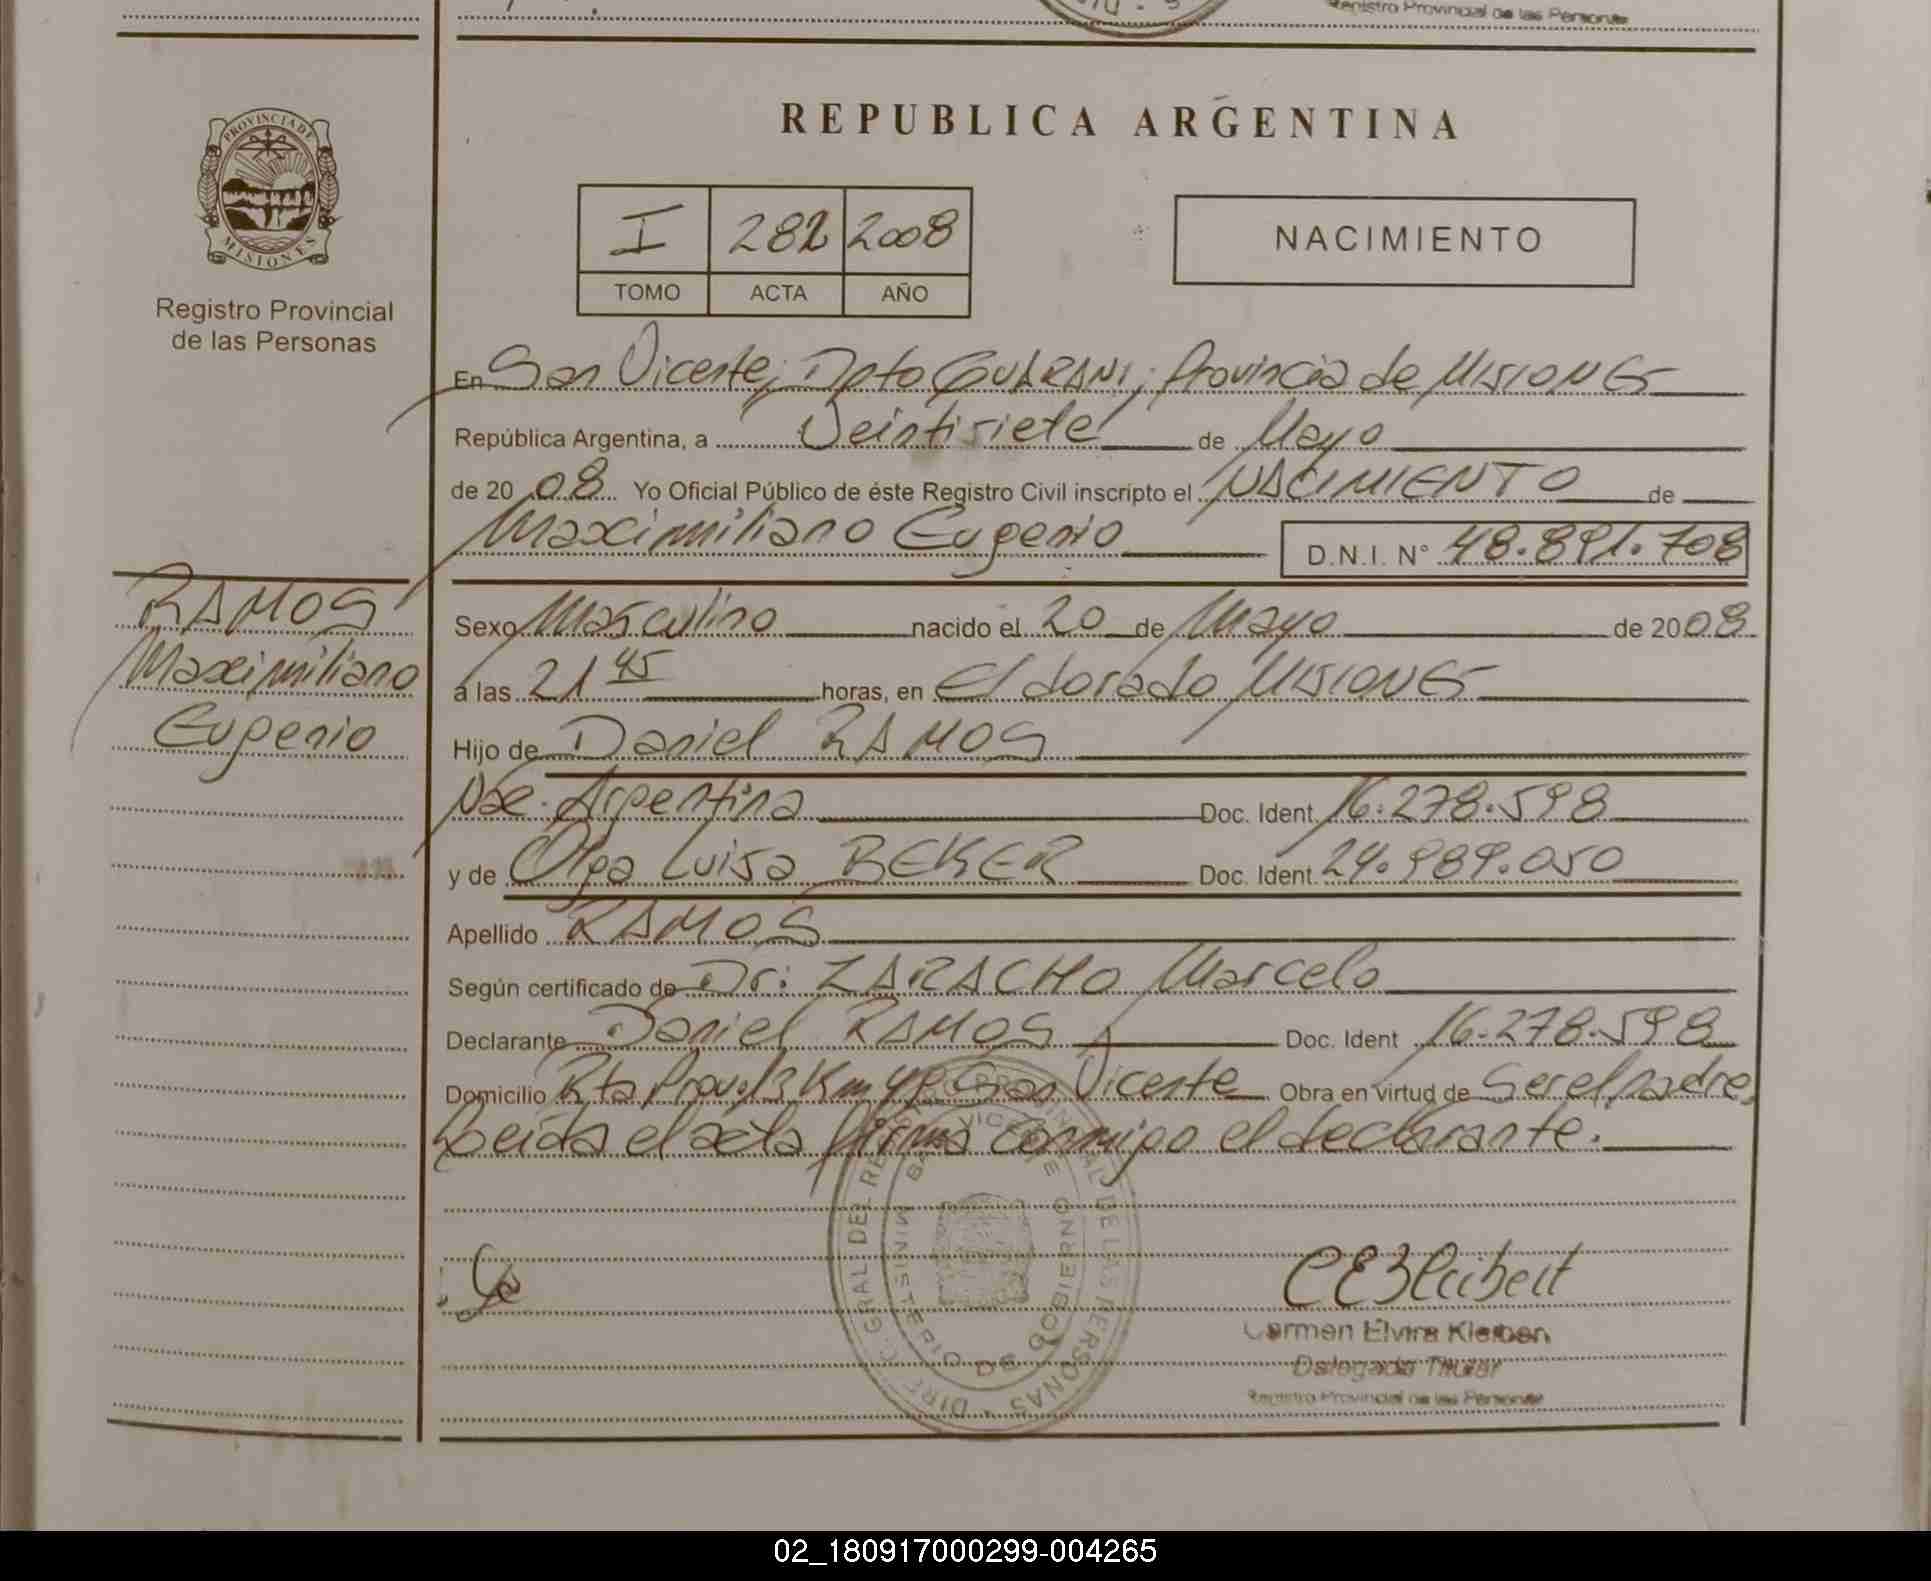 Registro Provincial de las Personas
PROVINCIA DE
MISIONES
Registro Provincial
de las Personas
REPUBLICA ARGENTINA
I 282 2008
TOMO ACTA AÑO
NACIMIENTO
En San Vicente, Dpto GUARANI, Provincia de MISIONES
República Argentina, a Veintisiete de Mayo
de 20 08 Yo Oficial Público de éste Registro Civil inscripto el NACIMIENTO de
Maximiliano Eugenio D.N.I. N° 48.891.708
RAMOS
Maximiliano
Eugenio
Sexo Masculino nacido el 20 de Mayo de 2008
a las 21 45 horas, en Eldorado MISIONES
Hijo de Daniel RAMOS
Nac. Argentina Doc. Ident. 16.278.598
y de Olga Luisa BEKER Doc. Ident. 24.989.050
Apellido RAMOS
Según certificado de Dr: ZARACHO Marcelo
Declarante Daniel RAMOS Doc. Ident 16.278.598
Domicilio Rta Prov. 13 Km San Vicente Obra en virtud de Ser el padre,
Leida el acta firma conmigo el declarante.
DIREC. GRAL DEL REG. PROVINCIAL DE LAS PERSONAS
SAN VICENTE
MINISTERIO DE GOBIERNO
Carmen Elvira Kleiben
Delegada Titular
Registro Provincial de las Personas
02_180917000299-004265